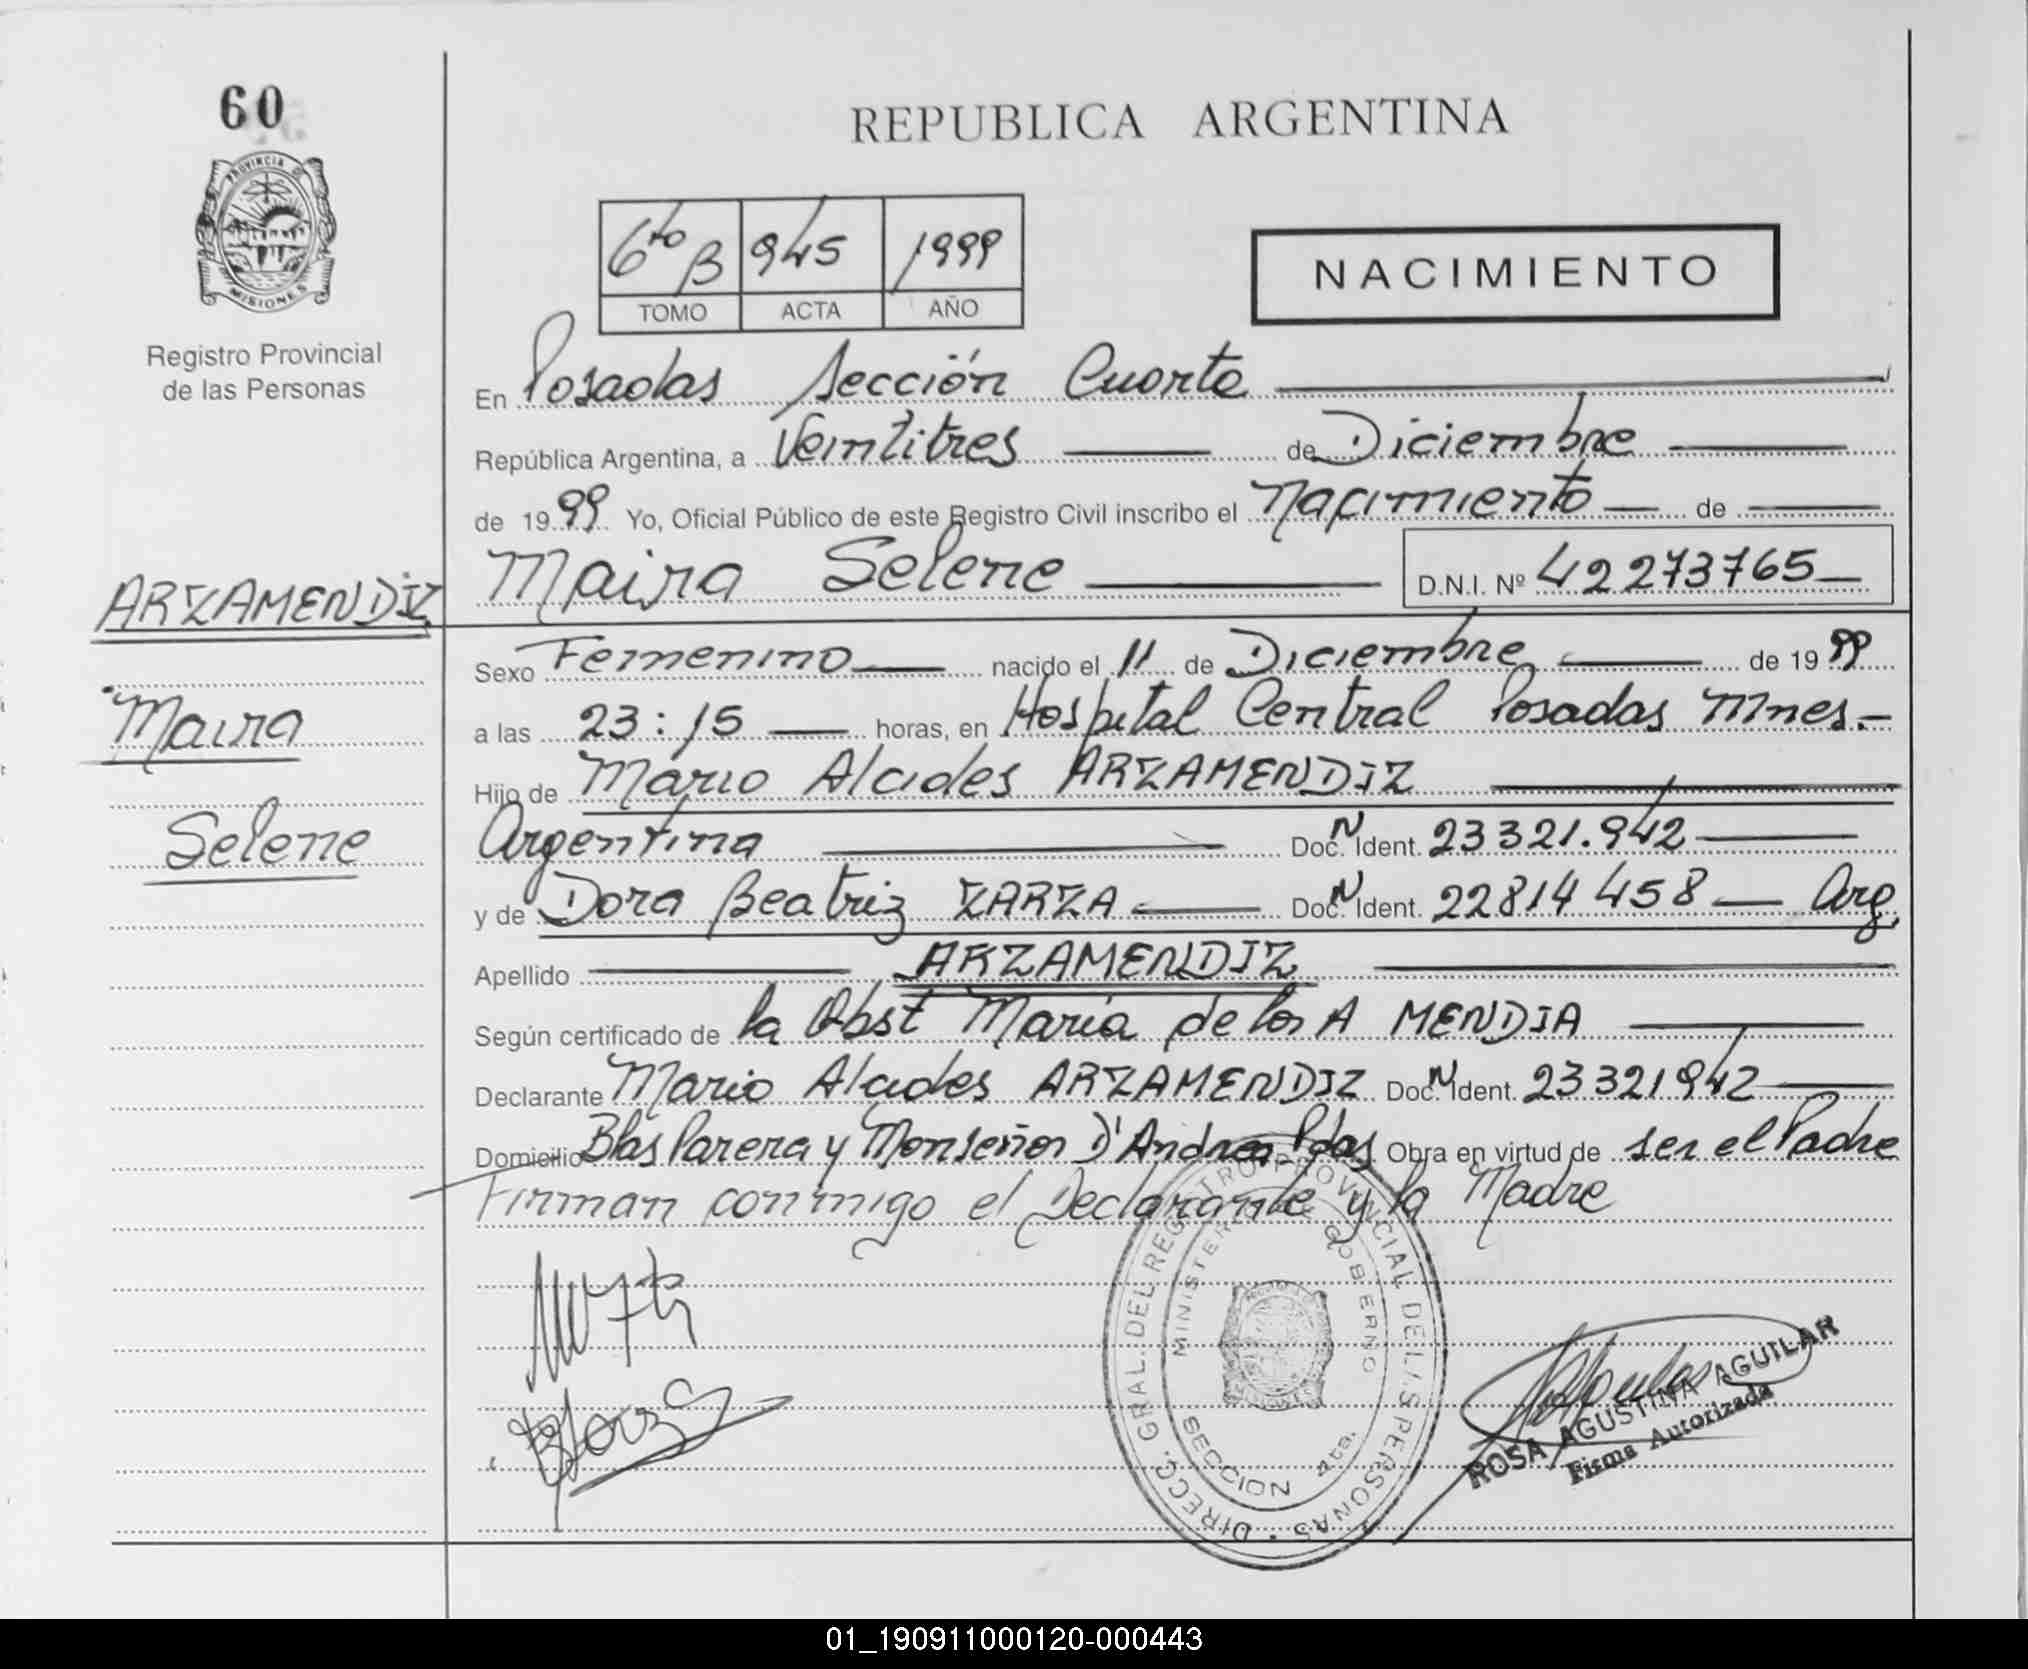 60
PROVINCIA DE
MISIONES
Registro Provincial
de las Personas
ARZAMENDIZ
Maira
Selene
REPUBLICA ARGENTINA
6to B 945 1999
TOMO ACTA AÑO
NACIMIENTO
En Posadas Sección Cuarta
República Argentina, a Veintitres de Diciembre
de 1999 Yo, Oficial Público de este Registro Civil inscribo el Nacimiento de
Maira Selene D.N.I. Nº 42273765
Sexo Femenino nacido el 11 de Diciembre de 1999
a las 23:15 horas, en Hospital Central Posadas Mnes.-
Hijo de Mario Alcides ARZAMENDIZ
Argentina Doc. N Ident. 23321.942
y de Dora Beatriz ZARZA Doc. N Ident. 22814458 Arg.
Apellido ARZAMENDIZ
Según certificado de la Obst Maria de los A MENDIA
Declarante Mario Alcides ARZAMENDIZ Doc. N Ident. 23321942
Domicilio Blas Parera y Monseñor D'Andrea Pdas Obra en virtud de ser el Padre
Firman conmigo el Declarante y la Madre
DIRECC. GRAL. DEL REGISTRO PROVINCIAL DE LAS PERSONAS
MINISTERIO DE GOBIERNO
SECCION 4ta.
ROSA AGUSTINA AGUILAR
Firma Autorizada
01_190911000120-000443